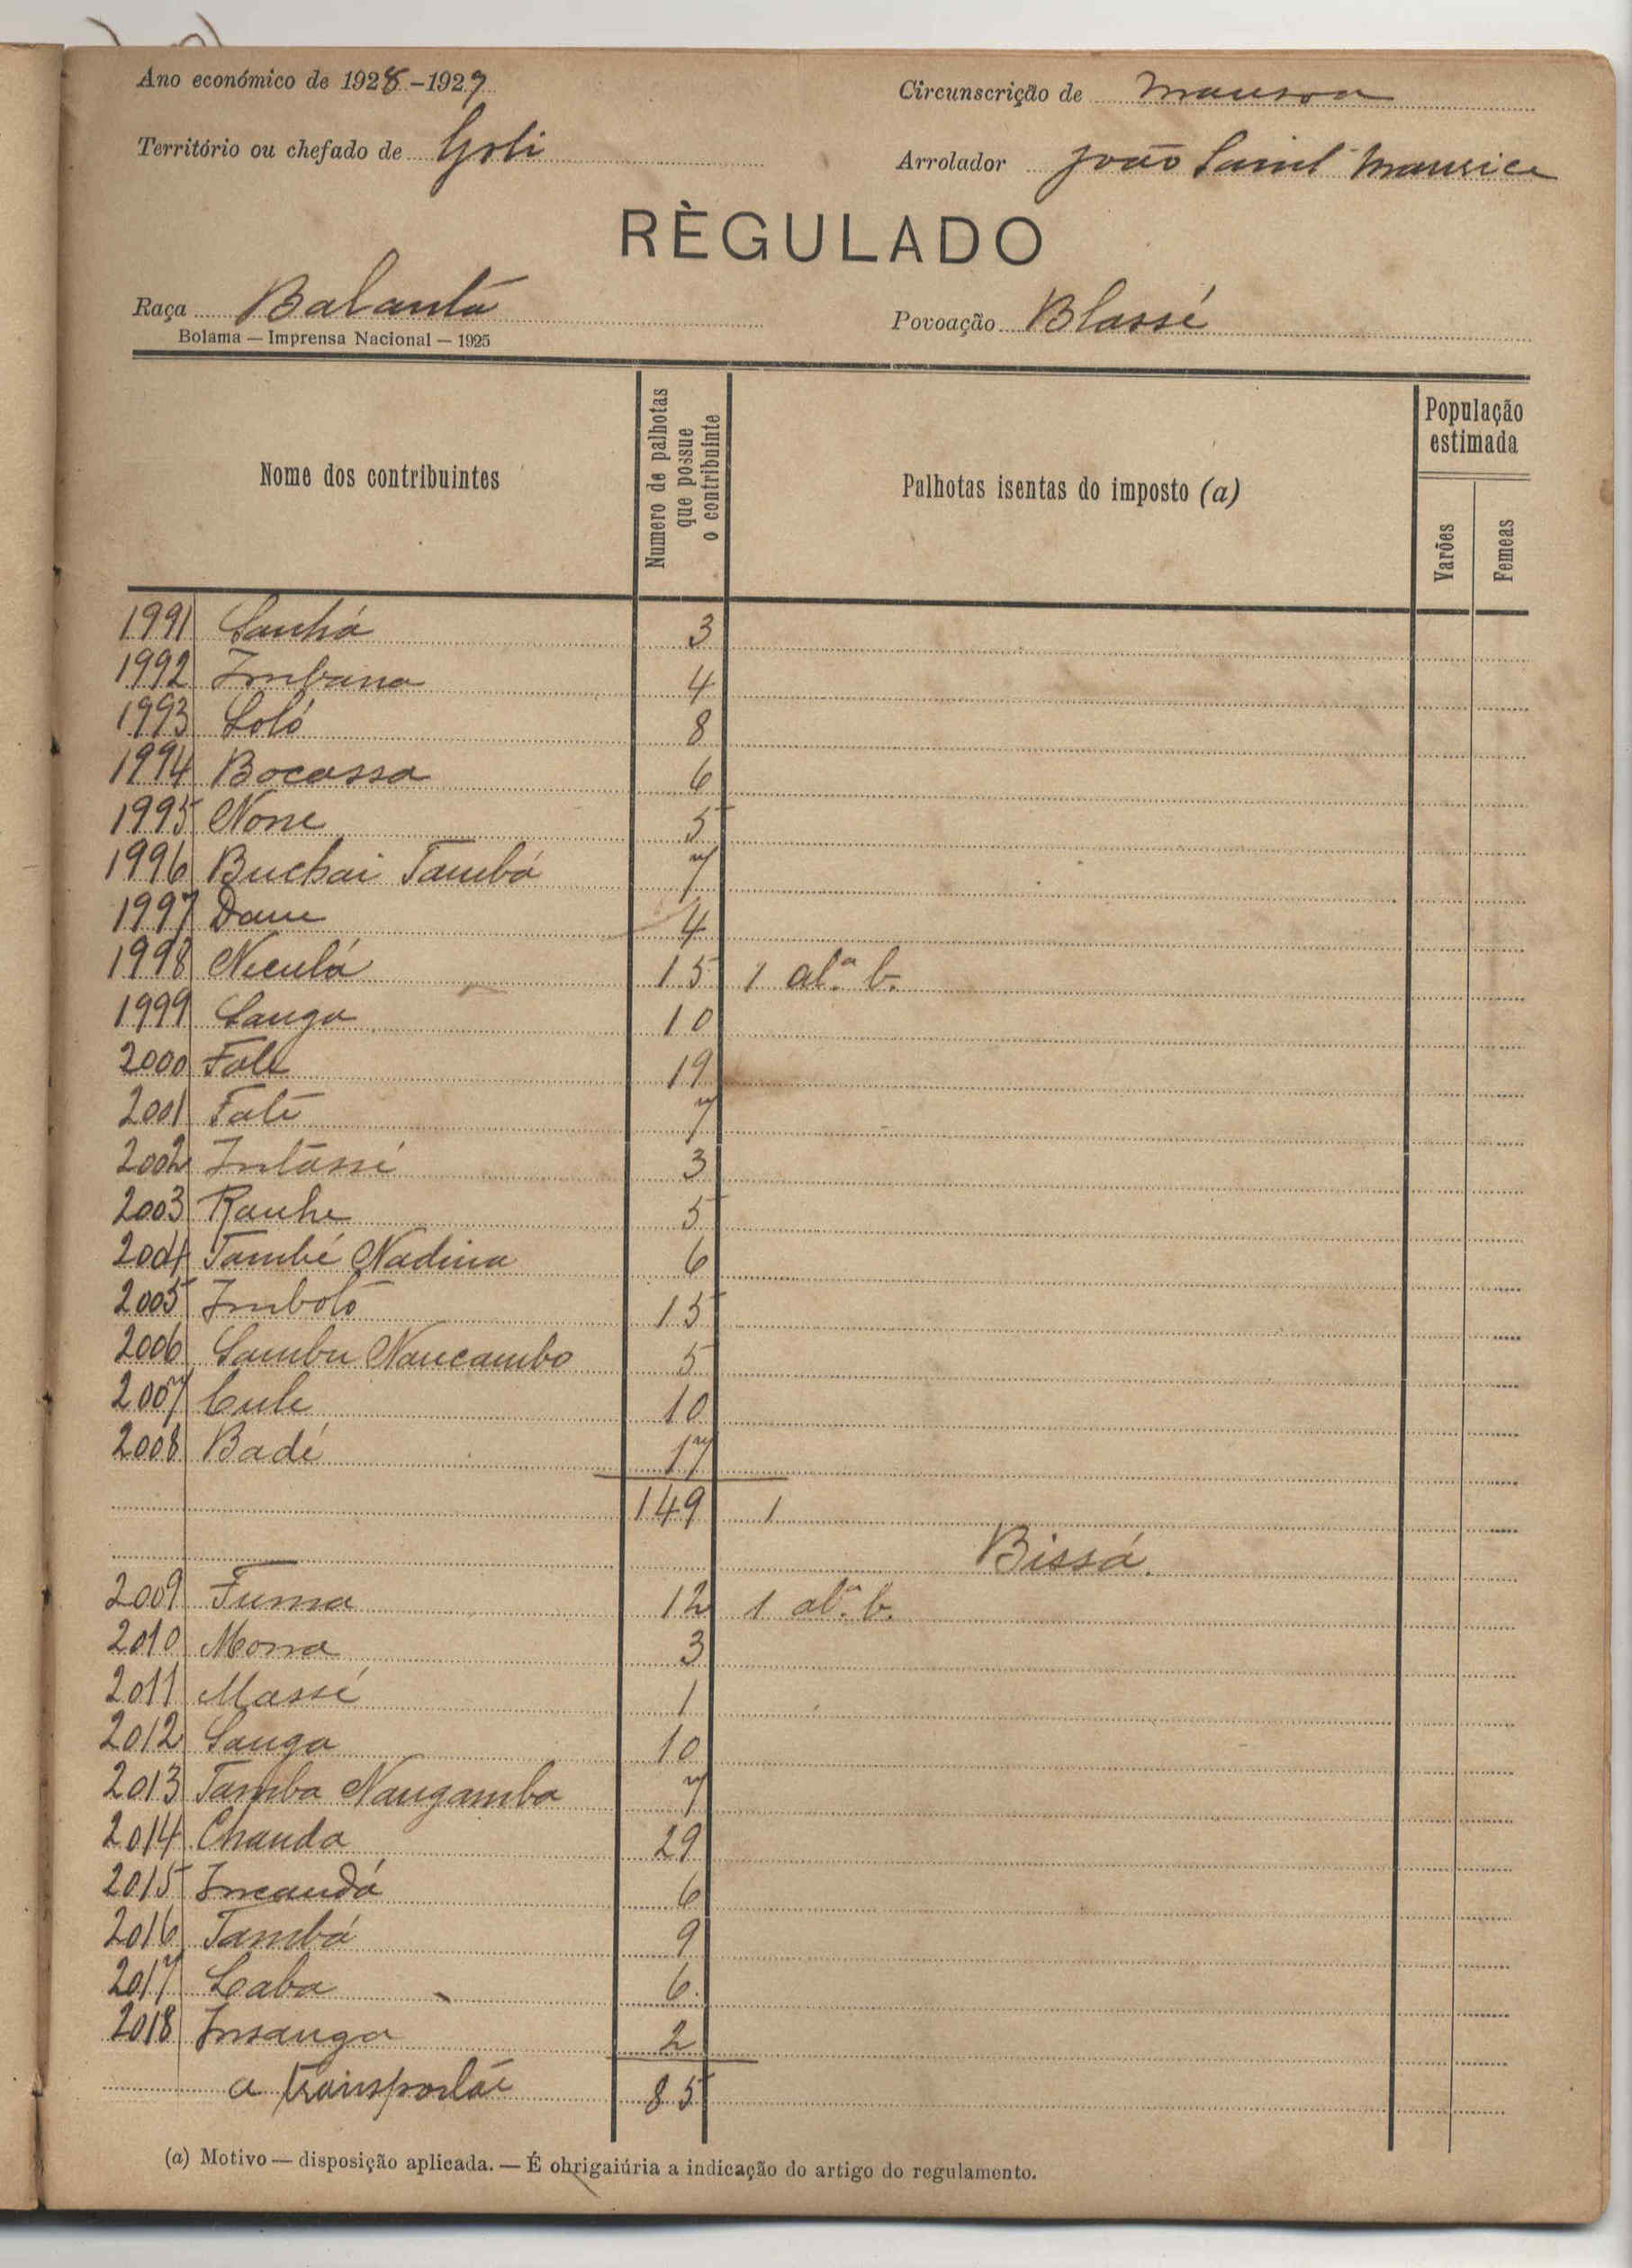 Ano económico de 1928-1929
Circunscrição de Mansoa
Território ou chefado de Goli
Arrolador João Saint Maurice
RÈGULADO
Raça Balanta
Povoação Blassé
Bolama — Imprensa Nacional — 1925
Nome dos contribuintes
Numero de palhotas que possue o contribuinte
Palhotas isentas do imposto (a)
População estimada
Varões
Femeas
1991 Sanhá 3
1992 Imbana 4
1993 Soló 8
1994 Bocassa 6
1995 None 5
1996 Buchai Tambá 7
1997 Dane 4
1998 Neculá 15 1 al.ª b.
1999 Sanga 10
2000 Fale 19
2001 Faté 7
2002 Intássi 3
2003 Ranhe 5
2004 També Nadina 6
2005 Imbotó 15
2006 Sambu Nancambo 5
2007 Cule 10
2008 Badé 17
149 1
Bissá.
2009 Fuma 12 1 al.ª b.
2010 Mona 3
2011 Massé 1
2012 Sanga 10
2013 Tamba Nangamba 7
2014 Chanda 29
2015 Incandá 6
2016 Tambá 9
2017 Laba 6
2018 Insanga 2
a transportár 85
(a) Motivo — disposição aplicada. — É obrigaiúria a indicação do artigo do regulamento.